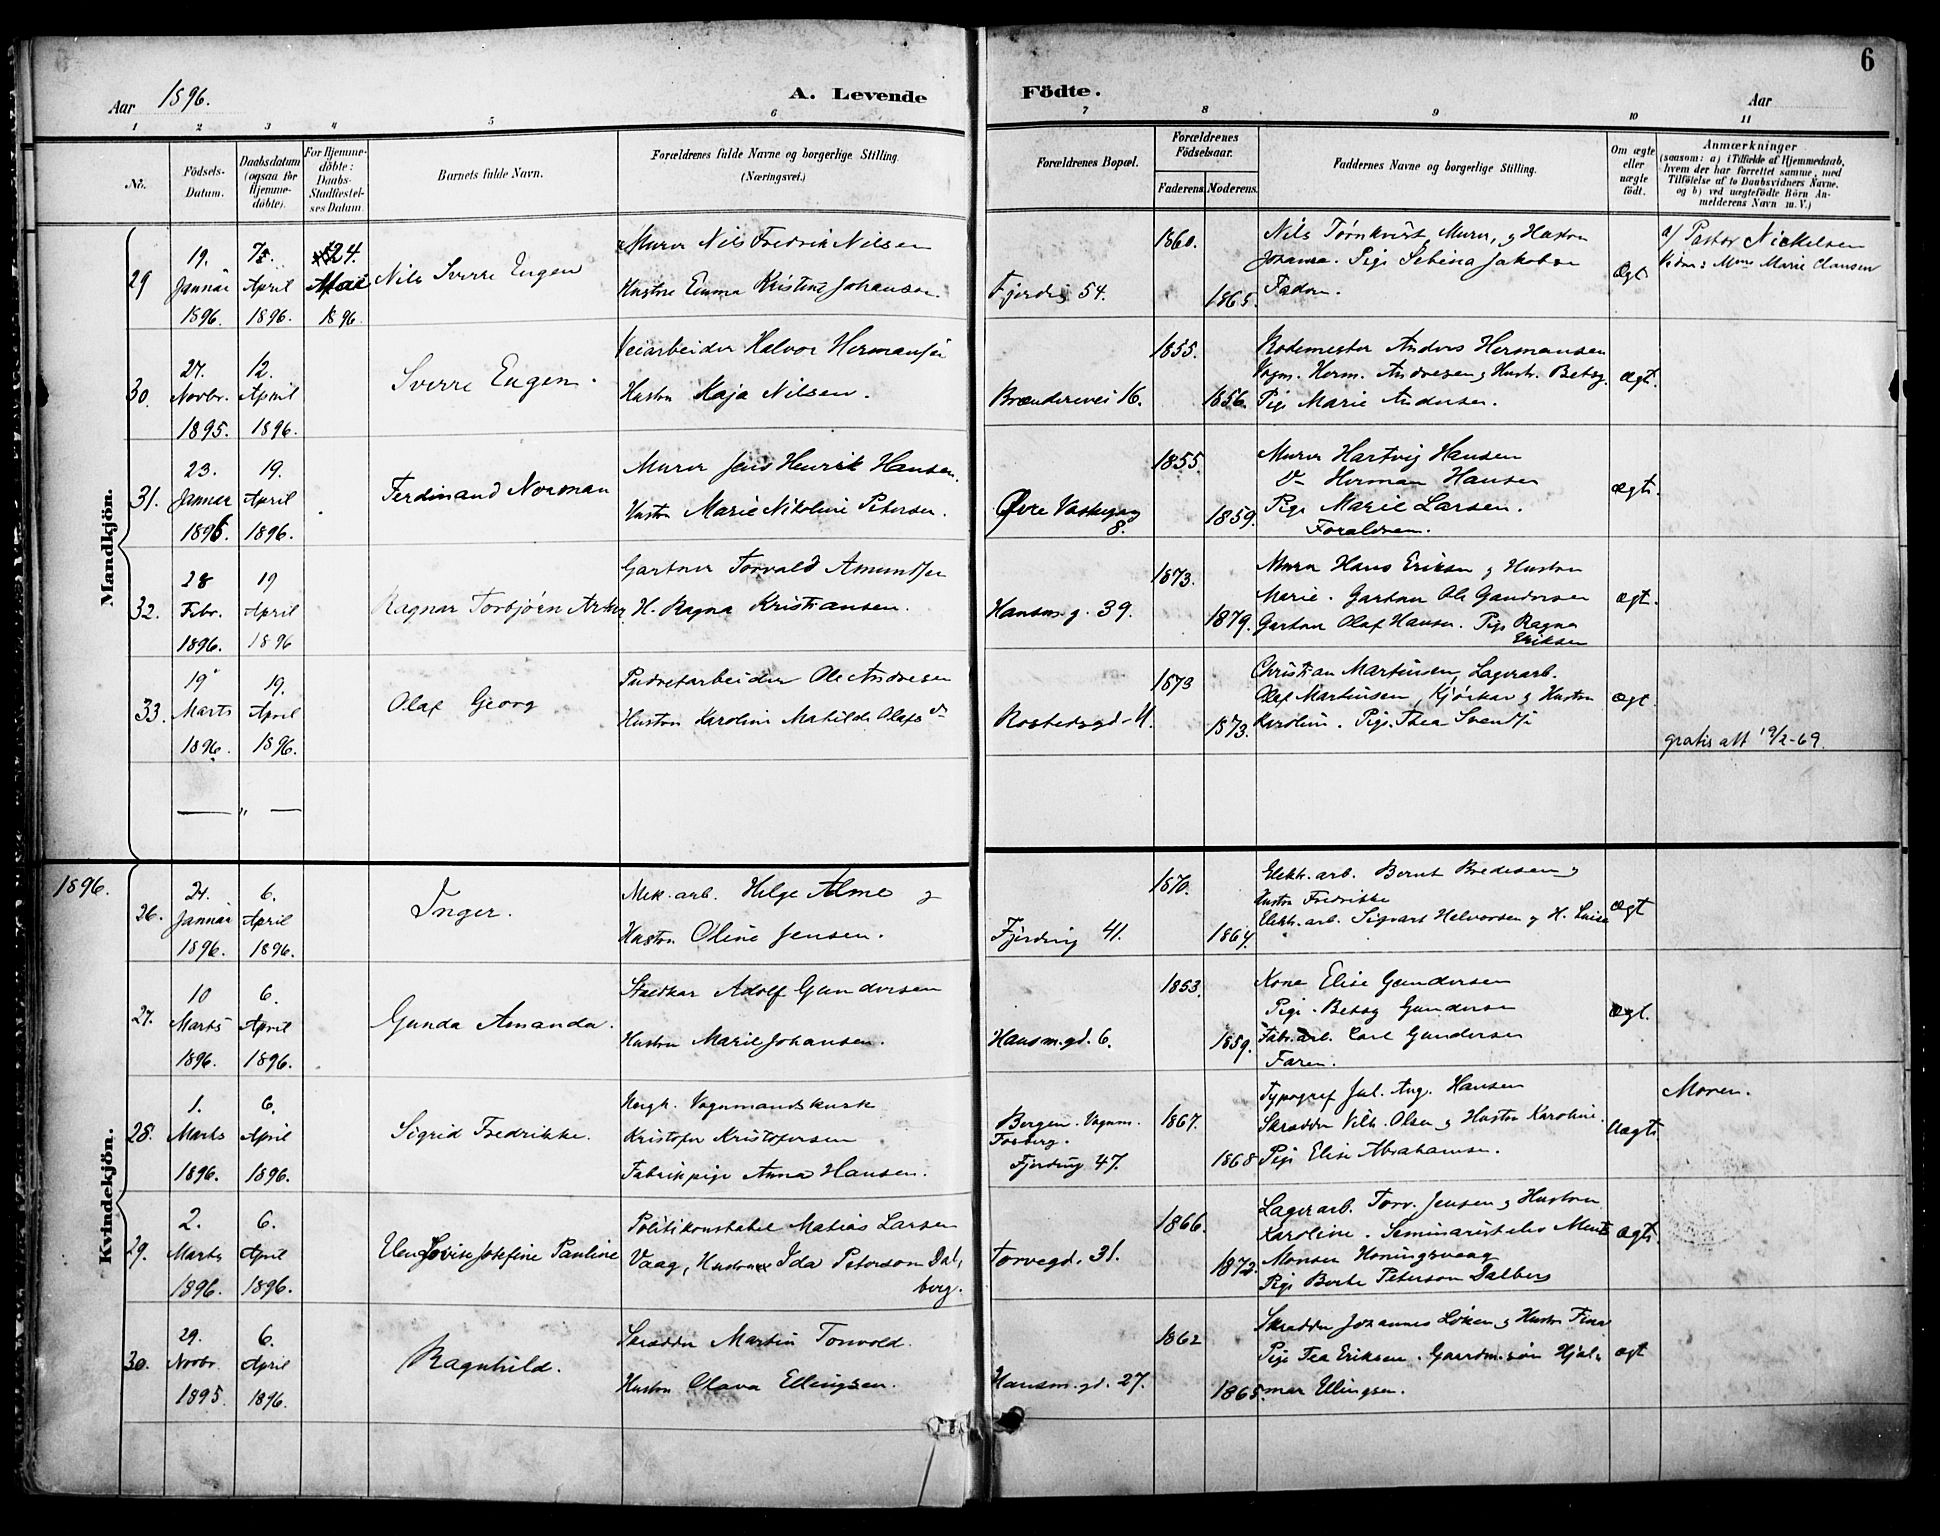 6
Aar 1896.
A. Levende Födte.
Aar
1 2 3 4 5 6 7 8 9 10 11
No.
Födsels-Datum.
Daabsdatum (ogsaa for Hjemme-döbte).
For Hjemme-döbte: Daabs-Stadfæstel-ses Datum.
Barnets fulde Navn.
Forældrenes fulde Navne og borgerlige Stilling. (Næringsvei.)
Forældrenes Bopæl.
Forældrenes Födselsaar.
Faderens. Moderens.
Faddernes Navne og borgerlige Stilling.
Om ægte eller uægte födt.
Anmærkninger
(saasom: a) i Tilfælde af Hjemmedaab,
hvem der har forrettet samme, med
Tilföielse af to Daabsvidners Navne.
og b) ved uægtefödte Börn An-
melderens Navn m. V.)
Mandkjön.
29
19. Januar 1896.
April 1896.
24. Mai 1896.
Nils Sverre Eugen
Murer Nils Fredrik Nilsen
Hustru Emma Kristine Johansen.
Fjerding 54.
1860.
1865.
Nils Törnkvist, Murer, og Hustru
Johanna. Pige Sebina Jakobsen
Faderen.
Ægt
a/ Pastor Nickelsen
Vidne: Mme Marie Clausen
30.
27. Novbr. 1895.
12. April 1896.
Sverre Eugen.
Veiarbeider Halvor Hermansen
Hustru Maja Nilsen.
Brænderivei 16.
1855.
1856.
Rodemester Anders Hermansen
Vogm. Herm. Andresen og Hustr. Betsy.
Pige Marie Andersen.
ægt.
31.
23. Januar 1896.
19. April 1896.
Ferdinand Norman
Murer Jens Henrik Hansen.
Hustru Marie Nikoline Petersen.
Øvre Vaskegang
8.
1855.
1859.
Murer Hartvig Hansen
Do Herman Hansen
Pige Marie Larsen.
Forældrene.
ægte.
32.
28 Febr. 1896.
19 April 1896
Ragnar Torbjörn Arthur
Gartner Torvald Amundsen
H. Ragna Kristiansen.
Hansm.g. 39.
1873.
1879.
Murer Hans Eriksen og Hustru
Marie. Gartner Ole Gundersen
Gartner Olaf Hansen. Pige Ragna
Eriksen
ægt.
33.
19 Marts 1896.
19. April 1896.
Olaf Georg
Pudretarbeider Ole Andresen
Hustru Karoline Matilde Olafsdr
Rostedsgd. 11.
1873
1873.
Christian Martinsen, Lagerarb.
Olaf Martinsen, Kjørekar og Hustru
Karoline. Pige Thea Svendsen
ægt.
gratis att 19/2-69.
— " —
Kvindekjön.
1896.
26.
24. Januar 1896.
6. April 1896.
Inger.
Mek. arb. Helge Alme og
Hustru Oline Jensen.
Fjerding 41.
1870.
1864.
Elektr. arb. Bernt Bredesen og
Hustru Fredrikke
Elektr. arb. Sigvart Halvorsen og H. Luisa
ægt
27.
10 Marts 1896.
6. April 1896.
Gunda Amanda.
Staldkar Adolf Gundersen
Hustru Marie Johansen.
Hansm.gd. 6.
1853.
1859.
Kone Elise Gundersen
Pige Betsy Gundersen
Fabr. arb. Carl Gundersen
Faren.
ægt.
28.
1. Marts 1896.
6. April 1896.
Sigrid Fredrikke.
Ungk. Vognmandskusk
Kristofer Kristofersen
Fabrikpige Anna Hansen.
Bergen. Vognm.
Forberg.
Fjerding 47.
1867.
1868
Typograf Jul. Aug. Hansen
Skrædder Vilh. Olsen og Hustru Karoline.
Pige Elise Abrahamsen.
Uægte
Moren.
29.
2. Marts 1896.
6. April 1896.
Lovise Josefine Pauline
Politikonstabel Matias Larsen
Vaag, Hustru Ida Peterson Dal-
berg.
Torvegd. 31.
1866.
1872.
Lagerarb. Torv. Jensen og Hustru
Karoline. Seminaristelev Mentz
Monsen Honingsvaag
Pige Berta Peterson Dalberg
ægte.
30.
29. Novbr. 1895.
6. April 1896.
Ragnhild.
Skrædder Martin Tonvold.
Hustru Olava Ellingsen.
Hansm.gd. 27.
1862
1865.
Skrædder Johannes Löken og Hustru Fina
Pige Tea Eriksen. Gaardm. sön Hjal-
mar Ellingsen.
ægt